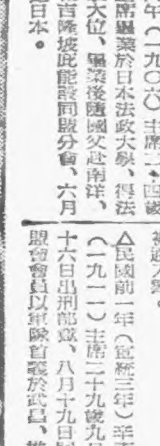 年（一九〇六）主席二十四歲
主席畢業於日本法政大學、得法
大位、畢業後隨國父赴南洋、
吉隆坡庇能設同盟分會、六月
日本。
△民國前一年（宣統三年）辛
（一九一一）主席二十九歲九
十六日出刑部獄、八月十九日
盟會會員以軍隊首義於武昌、